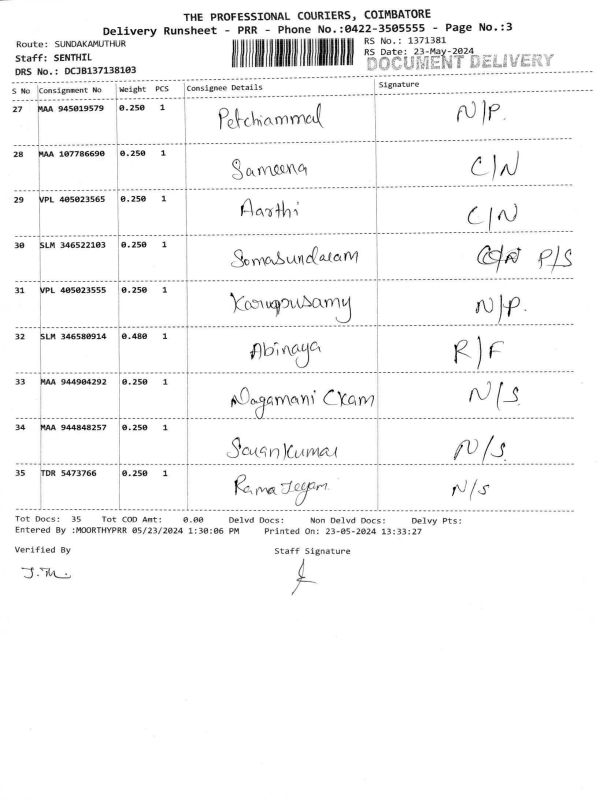 THE PROFESSIONAL COURIERS, COIMBATORE
Delivery Runsheet - PRR - Phone No.:0422-3505555 - Page No.:3
Route: SUNDAKAMUTHUR RS No.: 1371381
Staff: SENTHIL RS Date: 23-May-2024
DRS No.: DCJB137138103 DOCUMENT DELIVERY
S No Consignment No Weight PCS Consignee Details Signature
27 MAA 945019579 0.250 1 Petchiammal N/P.
28 MAA 107786690 0.250 1 Sameena C/N
29 VPL 405023565 0.250 1 Aarthi C/N
30 SLM 346522103 0.250 1 Somasundaram P/S
31 VPL 405023555 0.250 1 Karuppusamy N/P.
32 SLM 346580914 0.480 1 Abinaya R/F
33 MAA 944904292 0.250 1 Nagamani N/S
34 MAA 944848257 0.250 1 N/S.
35 TDR 5473766 0.250 1 Rama N/S
Tot Docs: 35 Tot COD Amt: 0.00 Delvd Docs: Non Delvd Docs: Delvy Pts:
Entered By :MOORTHYPRR 05/23/2024 1:30:06 PM Printed On: 23-05-2024 13:33:27
Verified By Staff Signature
J.M.